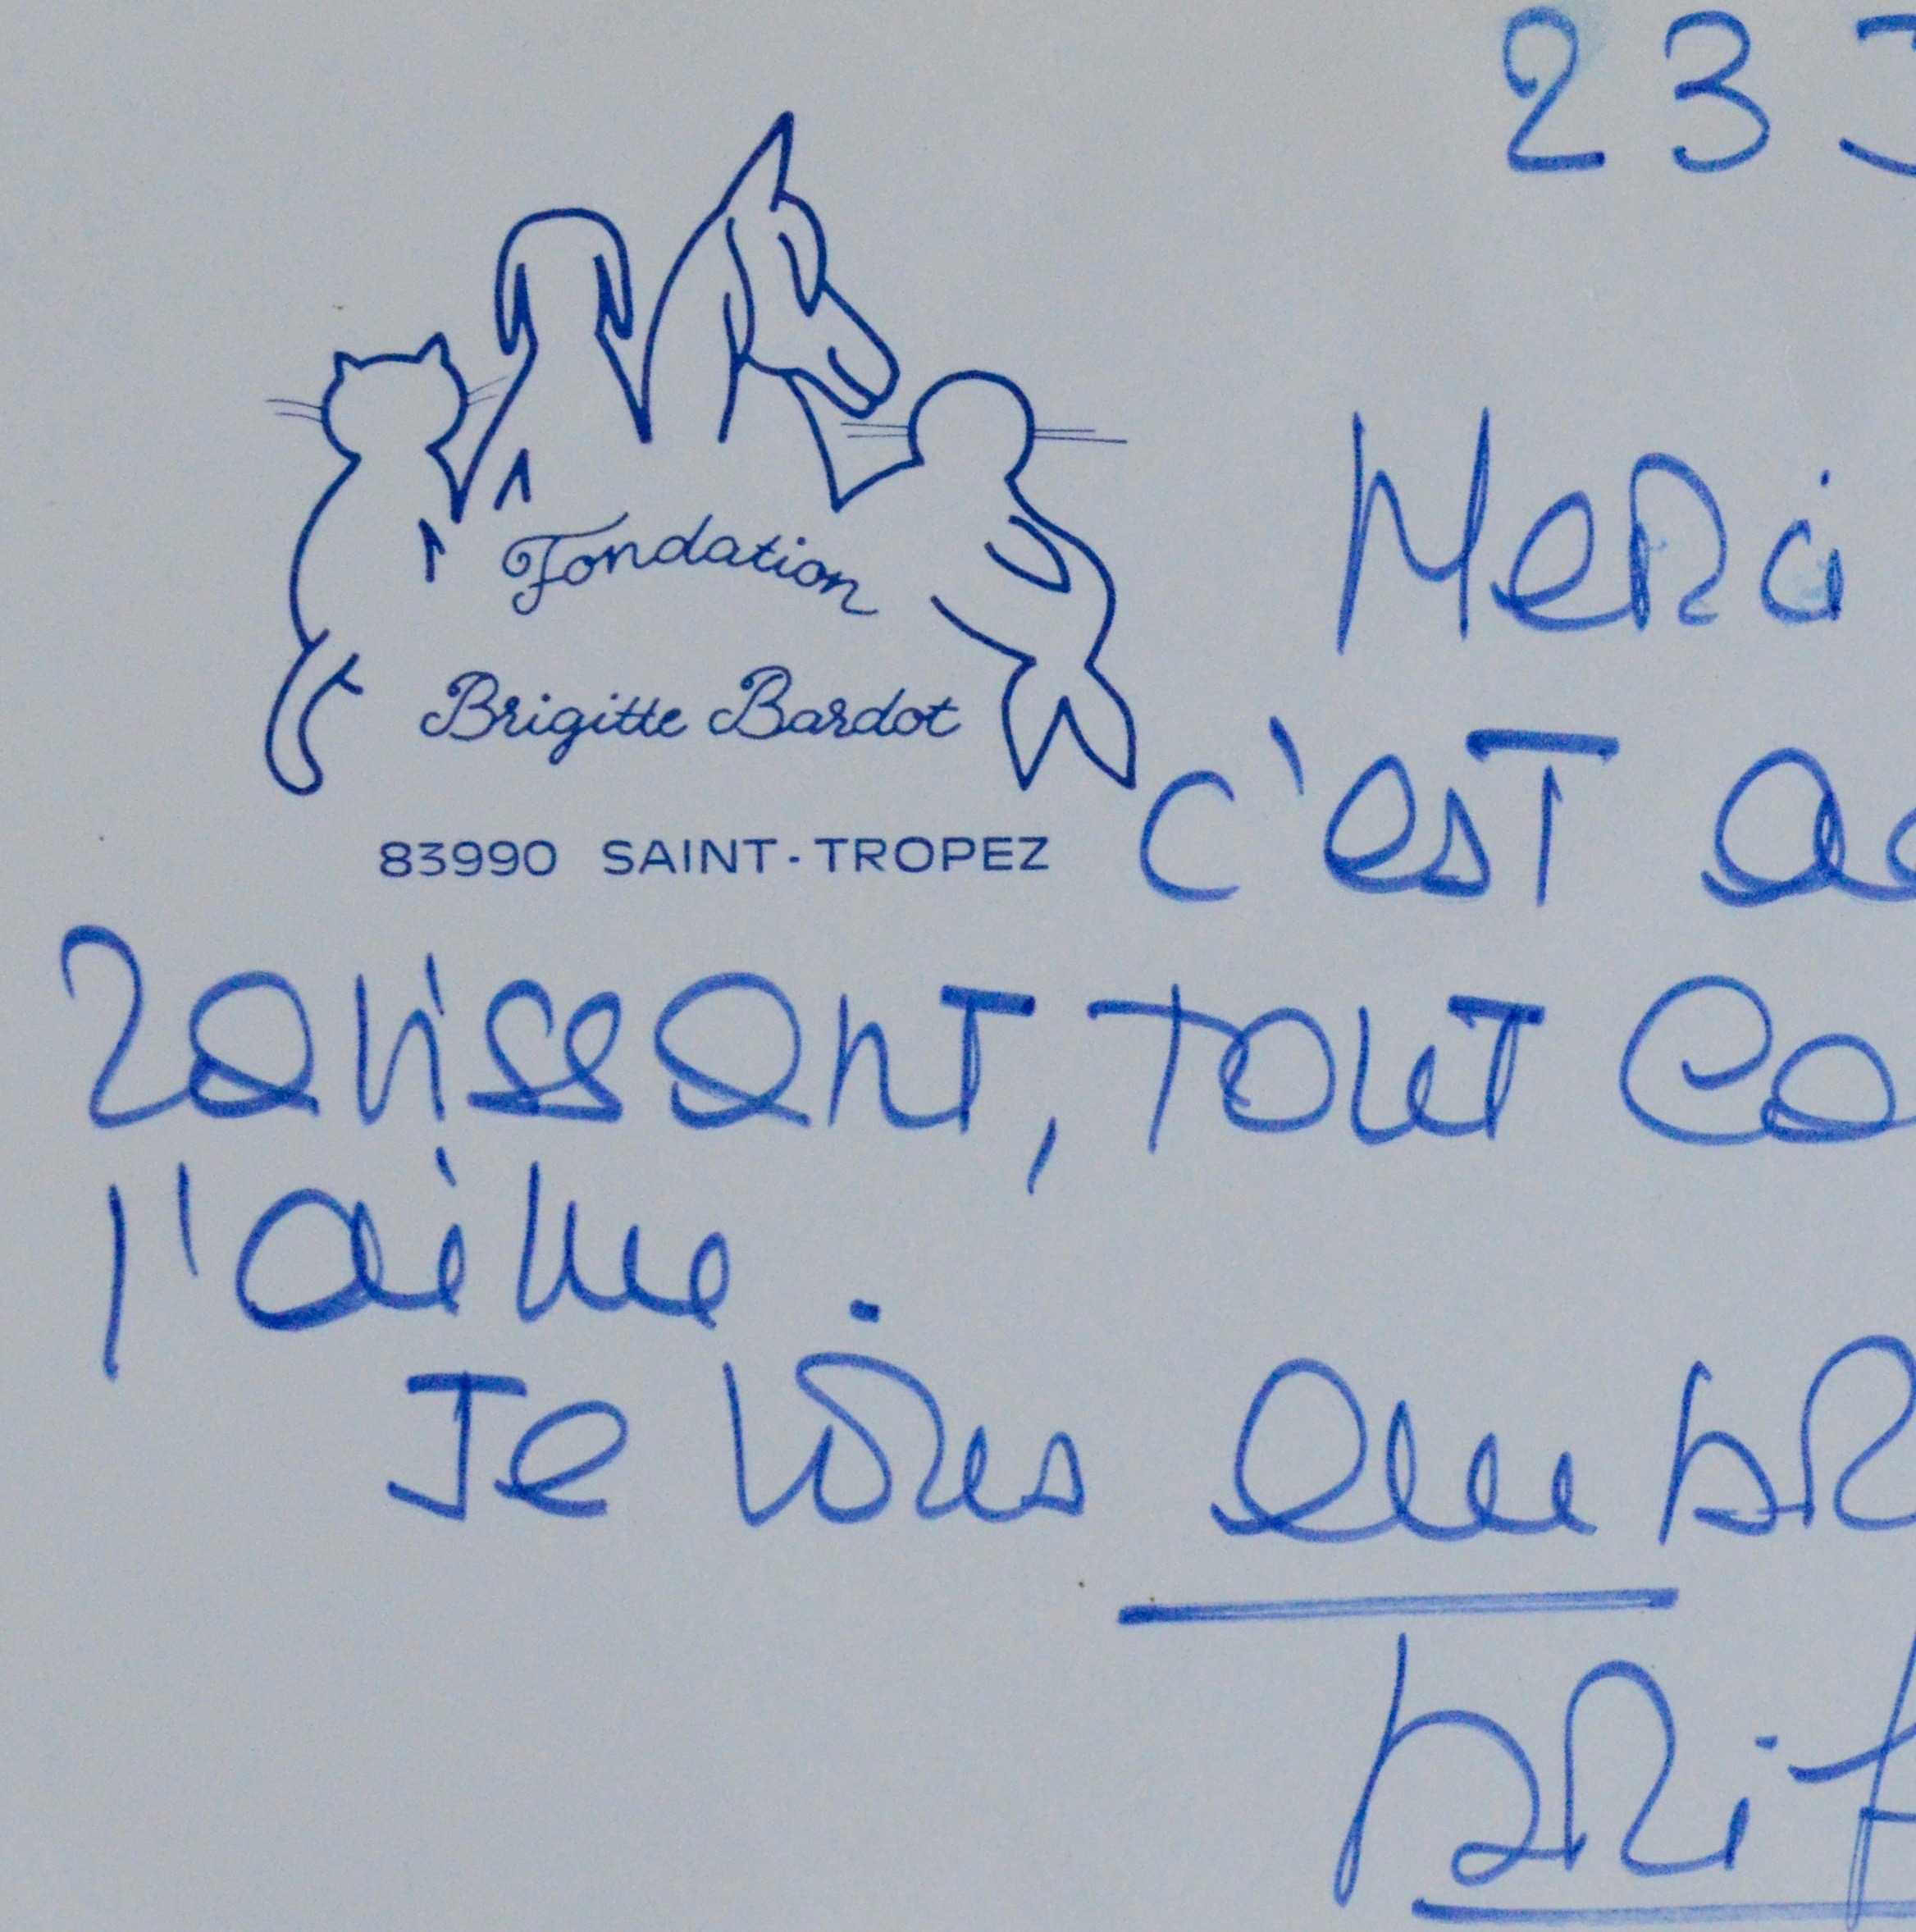 23 J
Fondation
Brigitte Bardot
83990 SAINT-TROPEZ
Merci
c'est ad
ravissant, tout co
j'aime.
Je vous embr
Brig